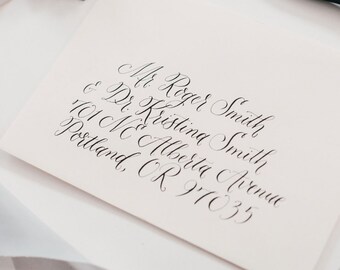 Mr Roger Smith
& Dr. Kristina Smith
701 NE Alberta Avenue
Portland, OR 97035